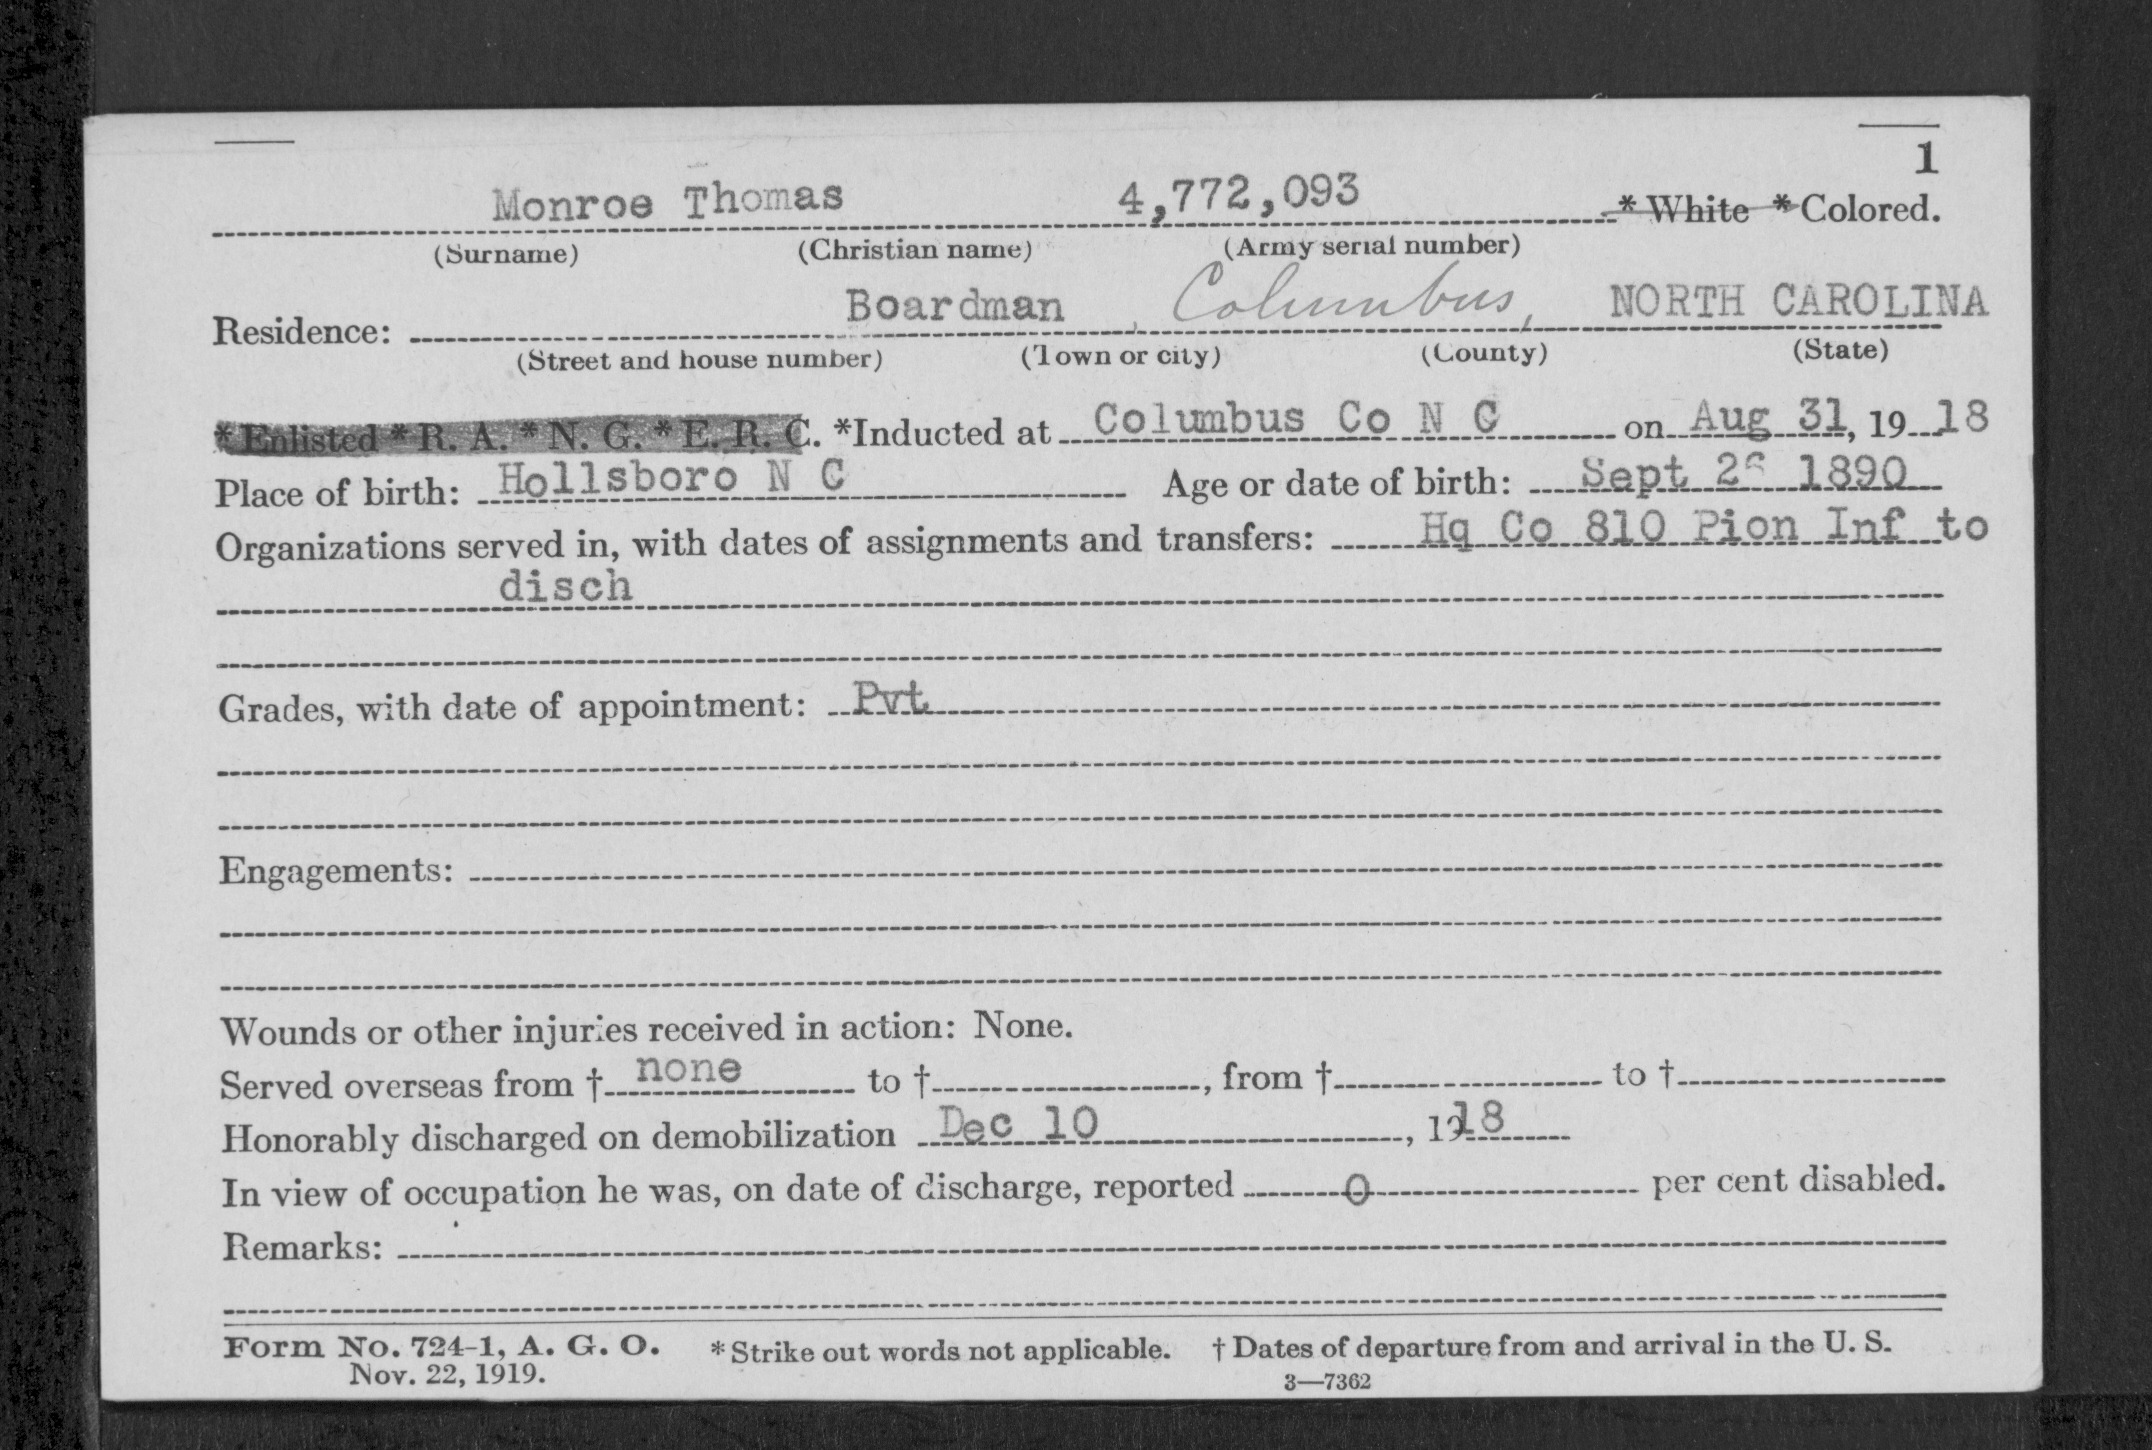 1
Monroe Thomas 4,772,093 * White * Colored.
(Surname) (Christian name) (Army serial number)
Residence: Boardman , Columbus, NORTH CAROLINA
(Street and house number) (Town or city) (County) (State)
* Enlisted * R. A. * N. G. * E. R. C. *Inducted at Columbus Co N C on Aug 31, 19 18
Place of birth: Hollsboro N C Age or date of birth: Sept 1890
Organizations served in, with dates of assignments and transfers: Hq Co 810 Pion Inf to
disch
Grades, with date of appointment: Pvt
Engagements:
Wounds or other injuries received in action: None.
Served overseas from † none to † , from † to †
Honorably discharged on demobilization Dec 10 , 1918
In view of occupation he was, on date of discharge, reported 0 per cent disabled.
Remarks:
Form No. 724-1, A. G. O. * Strike out words not applicable. † Dates of departure from and arrival in the U. S.
Nov. 22, 1919. 3—7362